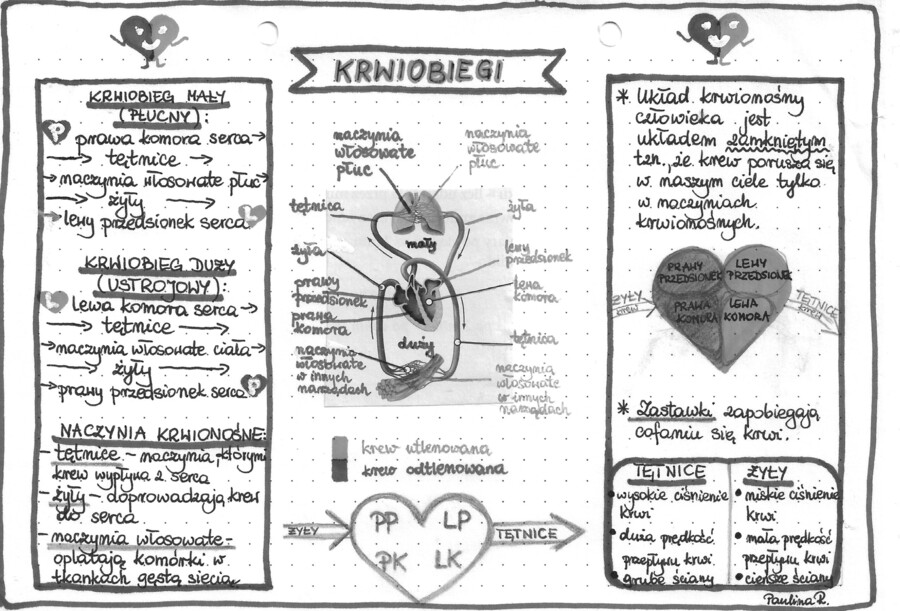 KRWIOBIEGI
KRWIOBIEG MAŁY
(PŁUCNY):
P
prawa komora serca →
→ tętnice →
→ naczynia włosowate płuc →
→ żyły →
→ lewy przedsionek serca
L
KRWIOBIEG DUŻY
(USTROJOWY):
L
lewa komora serca →
→ tętnice →
→ naczynia włosowate ciała →
→ żyły →
→ prawy przedsionek serca
P
NACZYNIA KRWIONOŚNE:
- tętnice - naczynia, którymi
krew wypływa z serca
- żyły - doprowadzają krew
do serca
- naczynia włosowate -
oplatają komórki w
tkankach gęstą siecią
naczynia
włosowate
płuc
naczynia
włosowate
płuc
tętnica
żyła
mały
żyła
lewy
przedsionek
prawy
przedsionek
lewa
komora
prawa
komora
duży
tętnica
naczynia
włosowate
w innych
narządach
naczynia
włosowate
w innych
narządach
krew utlenowana
krew odtlenowana
ŻYŁY
PP LP
PK LK
TĘTNICE
* Układ krwionośny
człowieka jest
układem zamkniętym
tzn., że krew porusza się
w naszym ciele tylko
w naczyniach
krwionośnych.
PRAWY
PRZEDSIONEK
LEWY
PRZEDSIONEK
PRAWA
KOMORA
LEWA
KOMORA
ŻYŁY
krew
TĘTNICE
krew
* Zastawki zapobiegają
cofaniu się krwi.
TĘTNICE
• wysokie ciśnienie
krwi
• duża prędkość
przepływu krwi
• grube ściany
ŻYŁY
• niskie ciśnienie
krwi
• mała prędkość
przepływu krwi
• cieńsze ściany
Paulina R.